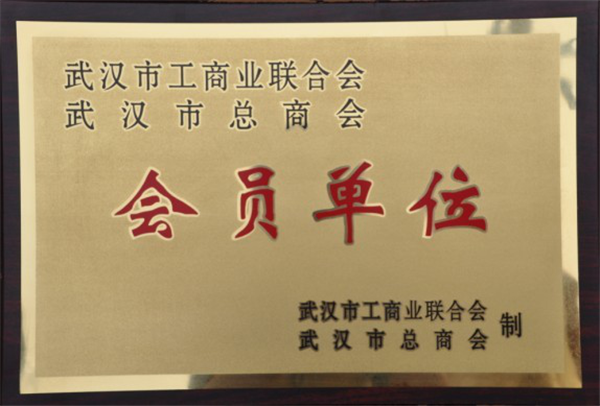 武汉市工商业联合会
武汉市总商会
会员单位
武汉市工商业联合会
武汉市总商会 制